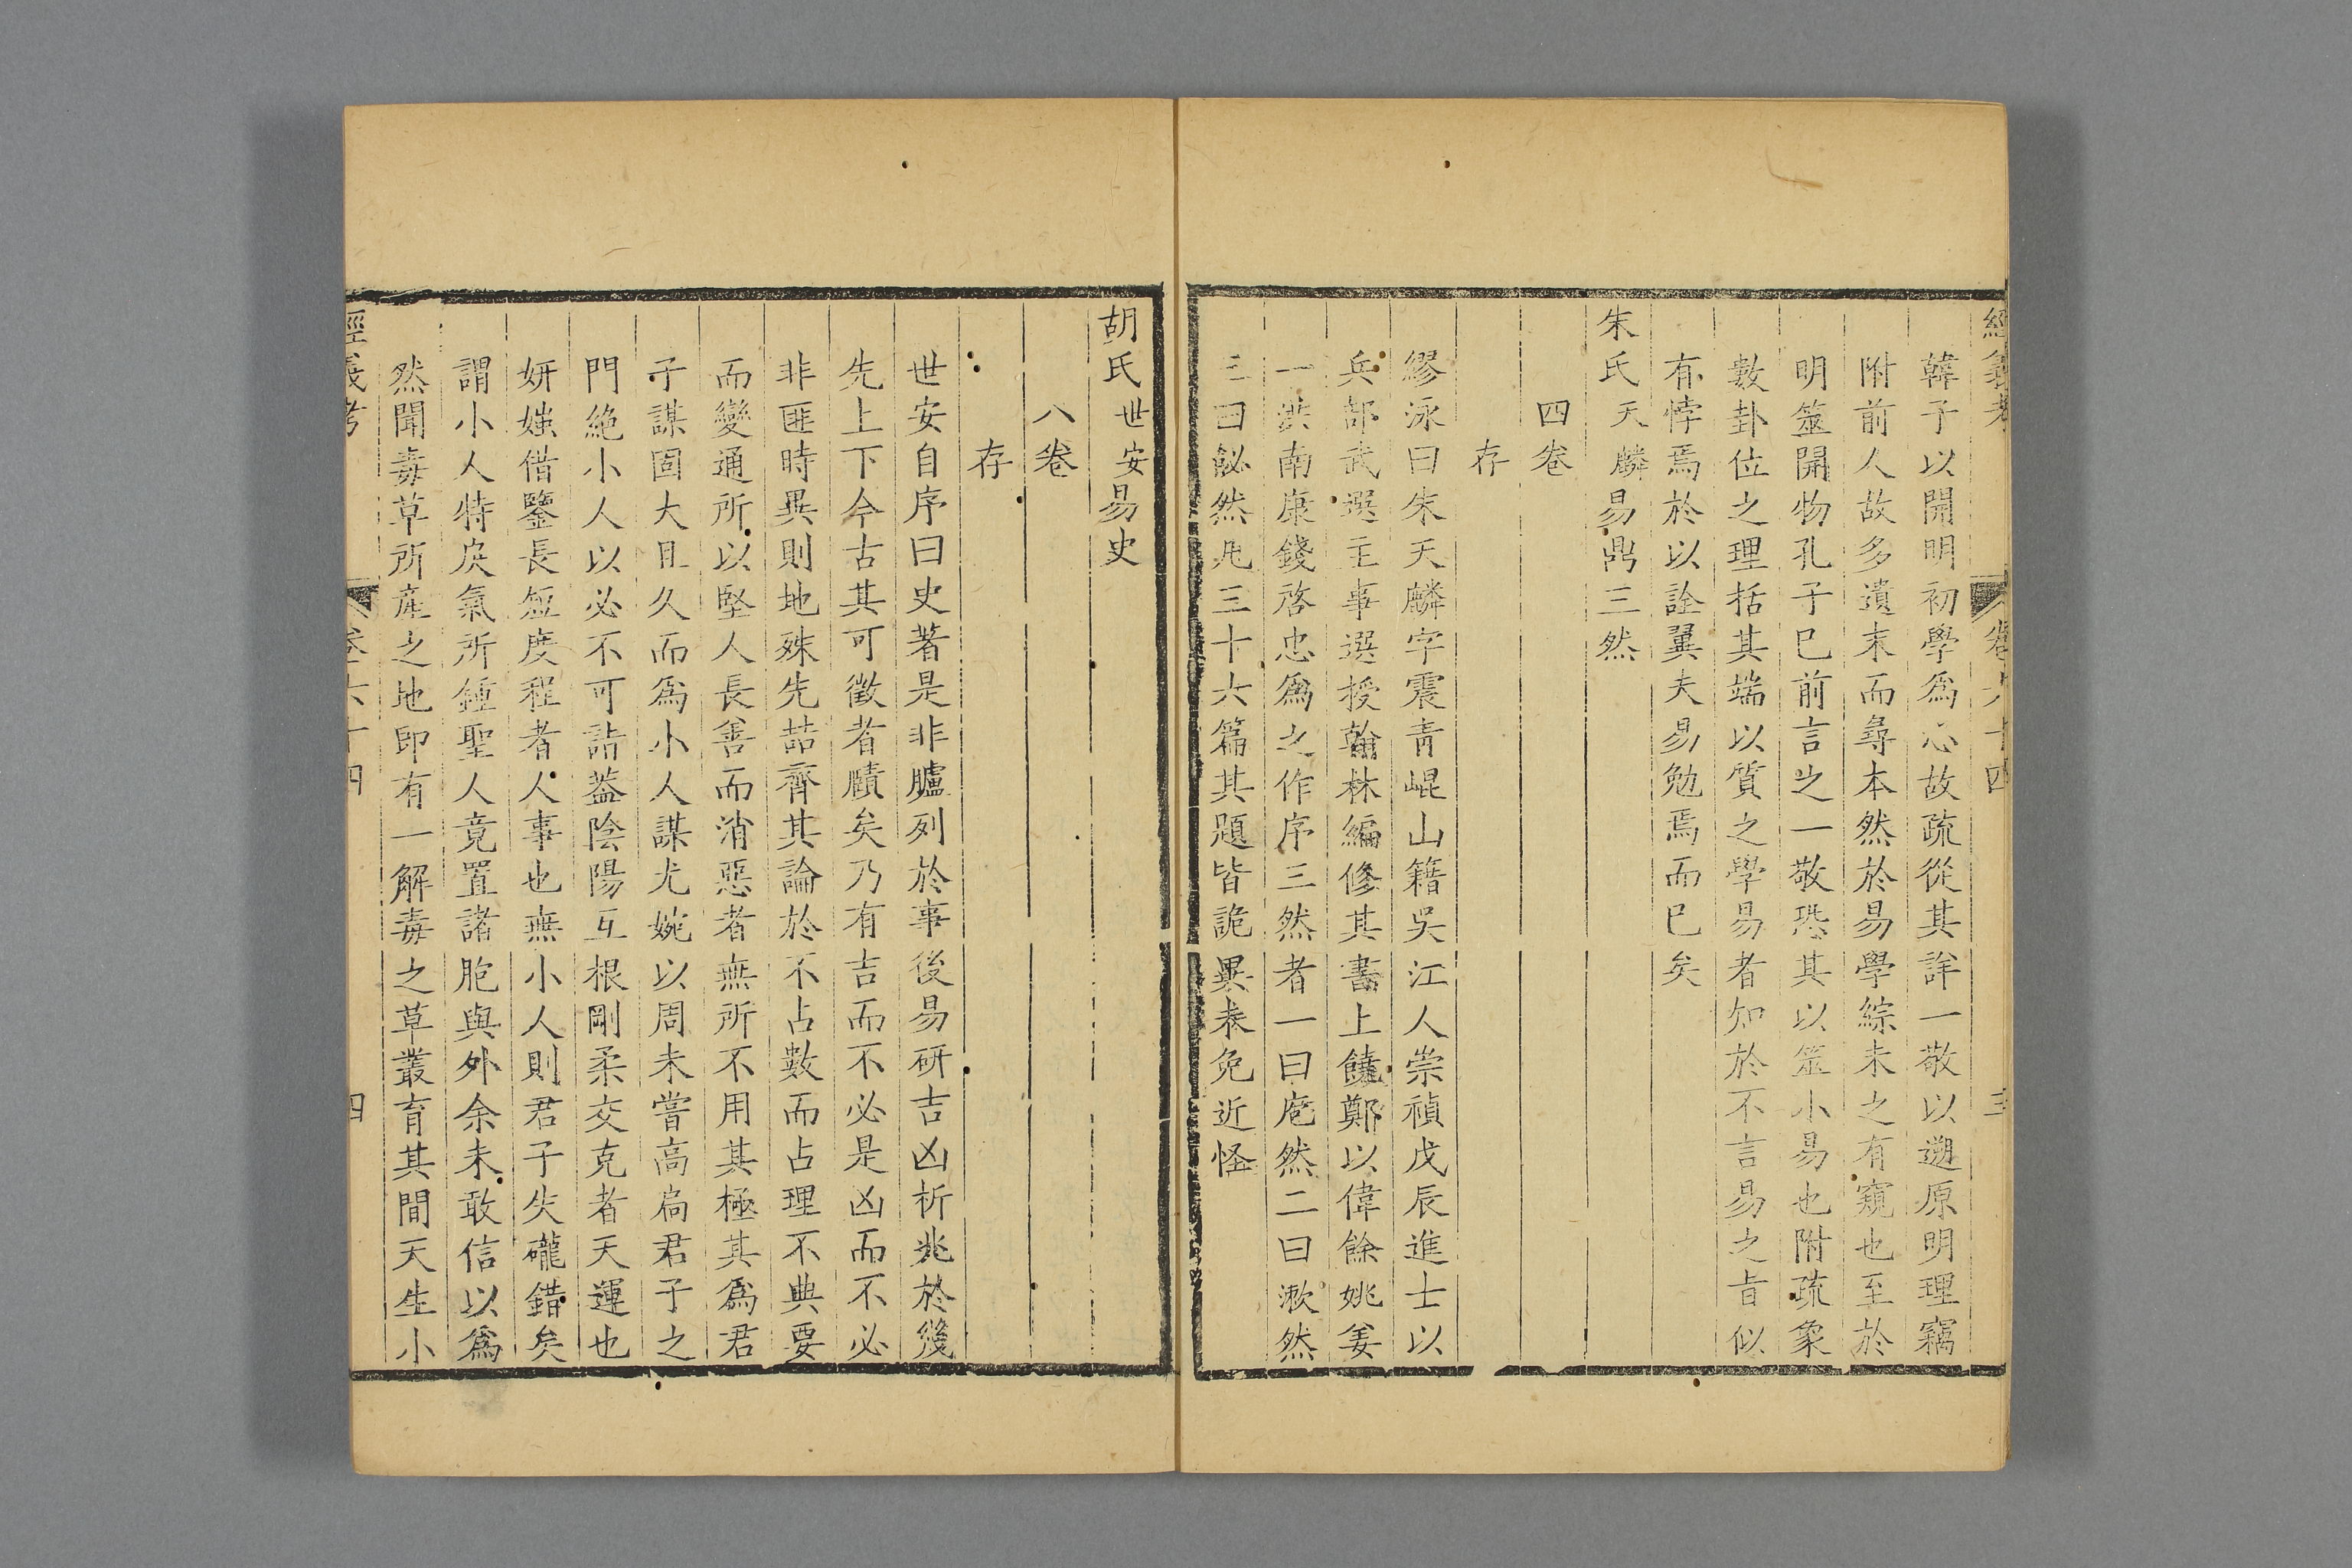 經義考 卷六十四 三
韓子以開明初學爲心故疏從其詳一敬以遡原明理竊
附前人故多遺末而尋本然於易學綜未之有窺也至於
明筮開物孔子已前言之一敬恐其以筮小易也附疏象
數卦位之理括其端以質之學易者知於不言易之旨似
有悖焉於以詮翼夫易勉焉而已矣
朱氏天麟易鼎三然
四卷
存
繆泳曰朱天麟字震青崐山籍吳江人崇禎戊辰進士以
兵部武選主事選授翰林編修其書上饒鄭以偉餘姚姜
一洪南康錢啓忠爲之作序三然者一曰庖然二曰漱然
三曰飶然凡三十六篇其題皆詭異未免近怪
胡氏世安易史
八卷
存
世安自序曰史著是非臚列於事後易研吉凶析兆於幾
先上下今古其可徵者賾矣乃有吉而不必是凶而不必
非匪時異則地殊先喆齊其論於不占數而占理不典要
而變通所以堅人長善而消惡者無所不用其極其爲君
子謀固大且久而爲小人謀尤婉以周未嘗高扃君子之
門絶小人以必不可詣葢陰陽互根剛柔交克者天運也
妍媸借鑒長短度程者人事也無小人則君子失礲錯矣
謂小人特戾氣所鍾聖人竟置諸胞與外余未敢信以爲
然聞毒草所産之地卽有一解毒之草叢育其間天生小
經義考 卷六十四 四